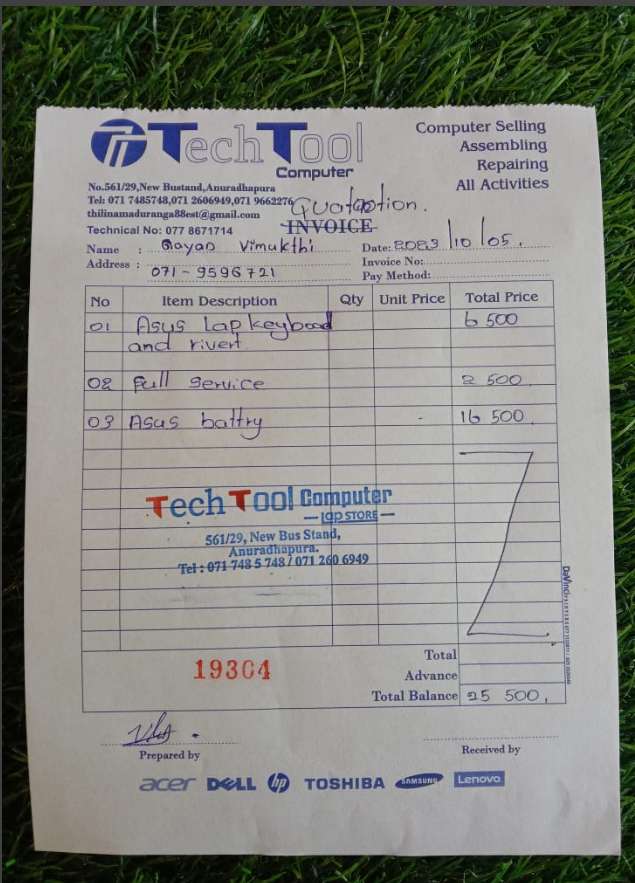 TechTool
Computer
Computer Selling
Assembling
Repairing
All Activities
No.561/29,New Bustand,Anuradhapura
Tel: 071 7485748,071 2606949,071 9662276
thilinamaduranga88est@gmail.com
Quotation.
Technical No: 077 8671714
INVOICE
Name : Gayan Vimukthi
Date: 2023/10/05.
Address : 071-9596721
Invoice No:
Pay Method:
No Item Description Qty Unit Price Total Price
01 Asus Lap keyboad 6 500
and rivert
02 Full Service 2 500.
03 Asus battry - 16 500.
TechTool Computer
LAP STORE
561/29, New Bus Stand,
Anuradhapura.
Tel : 071 748 5 748 / 071 260 6949
19304
Total
Advance
Total Balance 25 500.
Prepared by
Received by
acer DELL hp TOSHIBA SAMSUNG Lenovo